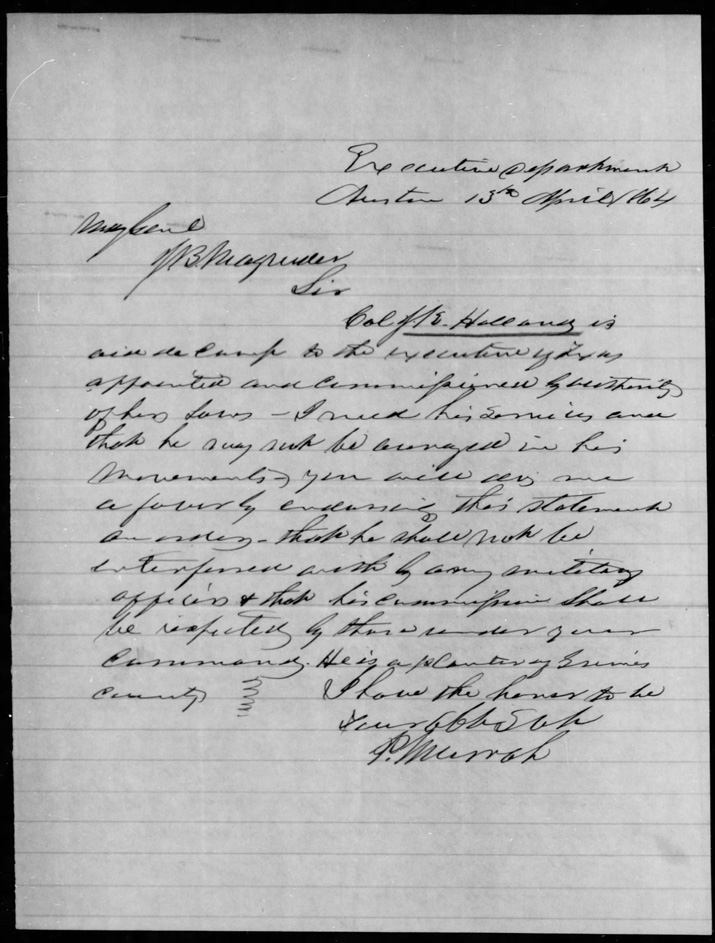 Executive Department
Austin 13th April 1864
Maj Genl
J B Magruder
Sir
Col J. E. Holland is
aid de camp to the executive of Texas
appointed and commissioned by authority
of her Laws - I need his services and
that he may not be annoyed in his
movements, you will do me
a favor by endorsing this statement
an order - that he shall not be
interferred with by any military
officer & that his commission shall
be respected by those under your
command. He is a planter of Grimes
county
I have the honor to be
Your Obt Svt
P. Murrah